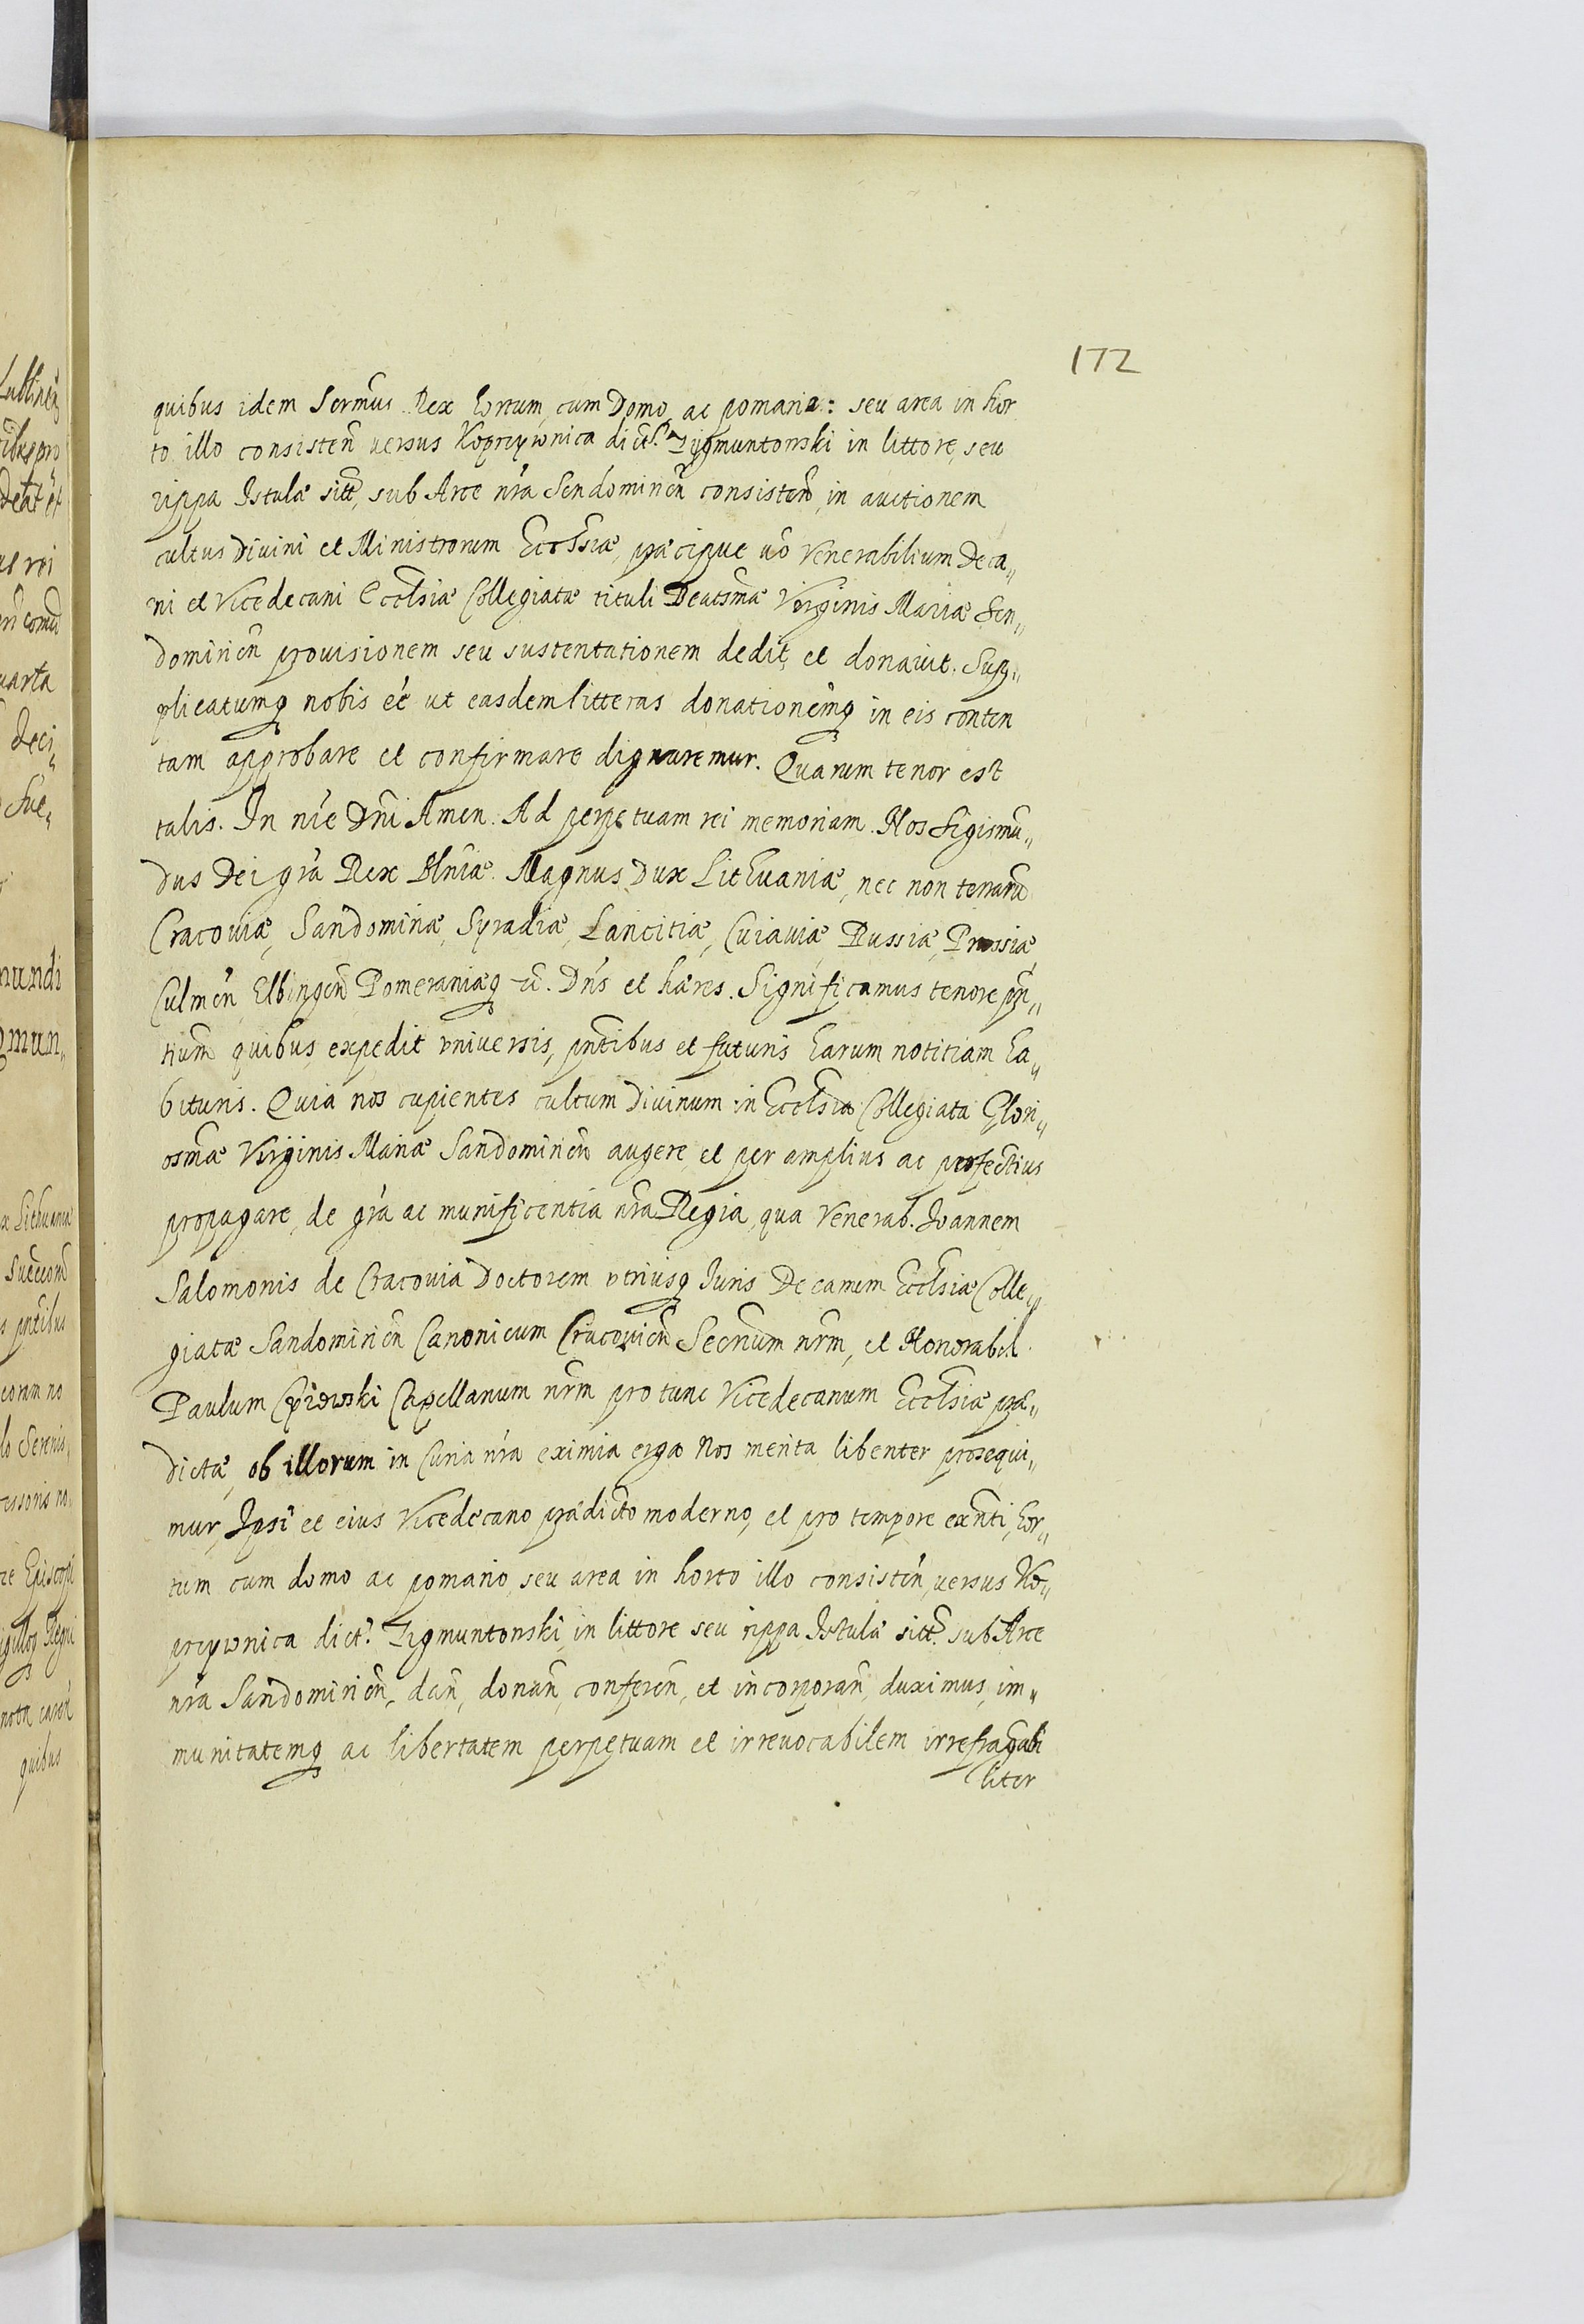 172
quibus idem Sermũs Rex hortum, cum Domo, ac pomaria: seu area in hor
to illo consisteñ versus Koprzywnica dict. Zygmuntowski in littore, seu
rippa Istulæ sitt, sub Arce nrã Sendomirieñ consisteñ, in auctionem
cultus Divini et Ministrorum Ecclsiæ, præcipue vo Venerabilium Deca„
ni et Vicedecani Ecclsiæ Collegiatæ tituli Beatsmæ Virginis Mariæ Sen„
domirieñ provisionem seu sustentationem dedit, et donavit. Sup„
plicatumq nobis ee ut easdem litteras donationemq in eis conten
tam approbare et confirmare dignaremur. Quarum tenor est
talis. In nie Dni Amen. Ad perpetuam rei memoriam. Nos Sigismũ„
dus Dei gra Rex Plniæ. Magnus Dux Lithuaniæ, nec non terrarũ
Cracoviæ, Sandomiriæ, Syradiæ, Lancitiæ, Cuiaviæ Russiæ, Prussiæ,
Culmeñ Elbingeñ Pomeraniæq &c. Dns et hæres. Significamus tenore pñ„
tium quibus expedit universis, pntibus et futuris harum notitiam ha„
bituris. Quia nos cupientes cultum Divinum in Ecclsia Collegiata Glori„
osmæ Virginis Mariæ Sandomirieñ augere, et per amplius ac perfectius
propagare, de gra ac munificentia nra Regia, qua Venerab. Joannem
Salomonis de Cracovia Doctorem utriusq Juris Decanum Ecclsiæ Colle„
giatæ Sandomirieñ Canonicum Cracovieñ Secrium nrm, et Honorabil.
Paulum Capellanum nrm pro tunc Vicedecanum Ecclsiæ præ„
dictæ, ob illorum in Curia nra eximia erga Nos merita libenter prosequi„
mur, Ipsi et eius Vicedecano prædicto moderno, et pro tempore exñti, hor„
tum cum domo ac pomario, seu area in horto illo consisteñ, versus Ko„
przywnica dict. Zigmuntowski, in littore seu rippa Istulæ sitt. sub Arce
nra Sandomirieñ, dañ, donañ, confereñ, et incorporañ, duximus, im„
munitatemq ac libertatem perpetuam et irrevocabilem irrefragabi
liter